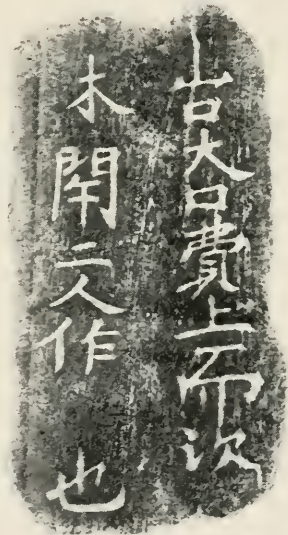 山口大口費上而次
木閇二人作也